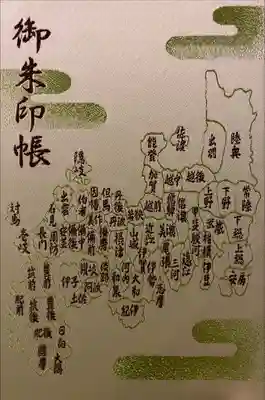 御朱印帳
陸奥
出羽
佐渡
能登
越中
越後
加賀
越前
飛騨
信濃
上野
下野
常陸
下総
上総
安房
武蔵
相模
伊豆
甲斐
駿河
遠江
三河
尾張
美濃
近江
若狭
丹後
丹波
山城
伊賀
伊勢
志摩
大和
紀伊
河内
和泉
摂津
但馬
播磨
因幡
美作
備前
隠岐
伯耆
出雲
石見
安芸
周防
長門
対馬
壱岐
讃岐
阿波
土佐
伊予
豊前
豊後
筑前
筑後
肥前
肥後
日向
大隅
薩摩